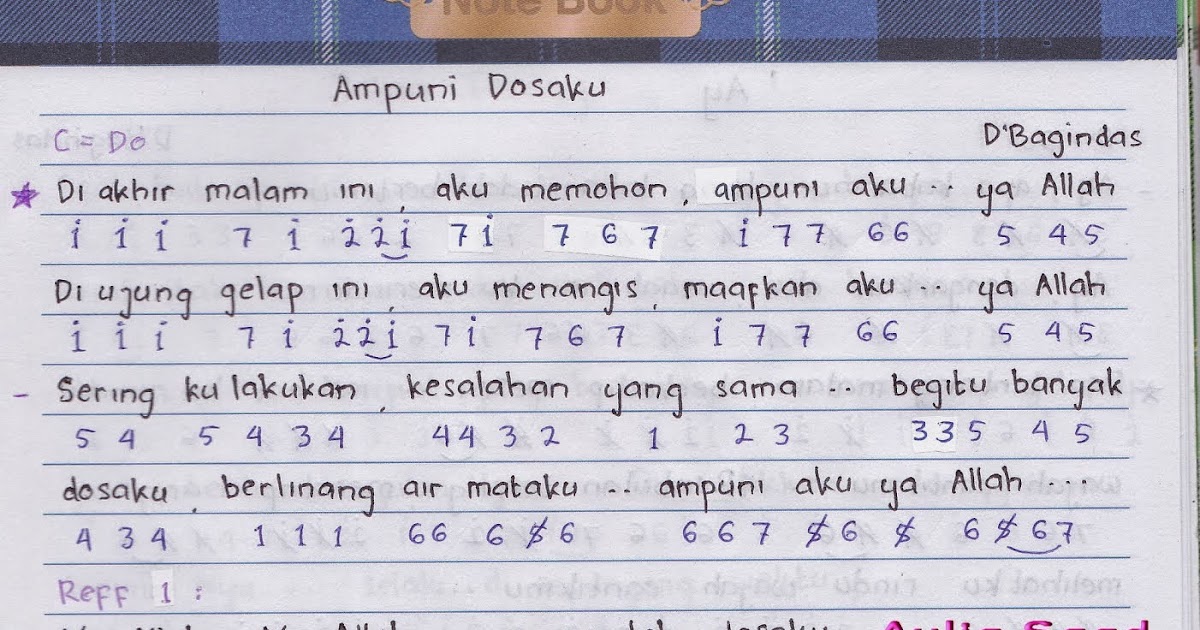 Note Book
Ampuni Dosaku
C = Do D'Bagindas
Di akhir malam ini, aku memohon, ampuni aku .. ya Allah
i̇ i̇ i̇ 7 i̇ 2̇ 2̇ i̇ 7 i̇ 7 6 7 i̇ 7 7 6 6 5 4 5
Di ujung gelap ini, aku menangis, maafkan aku .. ya Allah
i̇ i̇ i̇ 7 i̇ 2̇ 2̇ i̇ 7 i̇ 7 6 7 i̇ 7 7 6 6 5 4 5
- Sering ku lakukan, kesalahan yang sama ... begitu banyak
5 4 5 4 3 4 4 4 3 2 1 2 3 3 3 5 4 5
dosaku, berlinang air mataku ... ampuni aku ya Allah ...
4 3 4 1 1 1 6 6 6 5̸ 6 6 6 7 5̸ 6 5̸ 6 5̸ 6 7
Reff 1 :